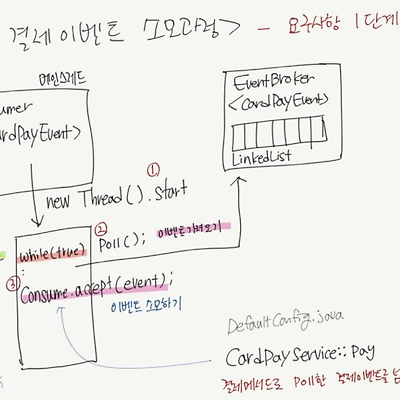 결제 이벤트 소모과정> - 요구사항 1단계
메인스레드
umer
ardPayEvent>
EventBroker
<CardPayEvent>
LinkedList
①
new Thread().start
②
while(true)
Poll(); 이벤트가져오기
③
Consume.accept(event);
이벤트 소모하기
DefaultConfig.java
CardPayService::Pay
결제메서드로 Poll한 결제이벤트를 넘